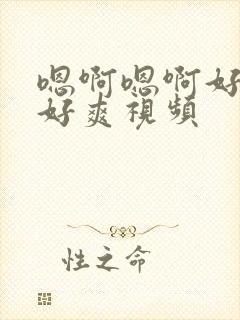 嗯啊嗯啊好
好爽視頻
性之命